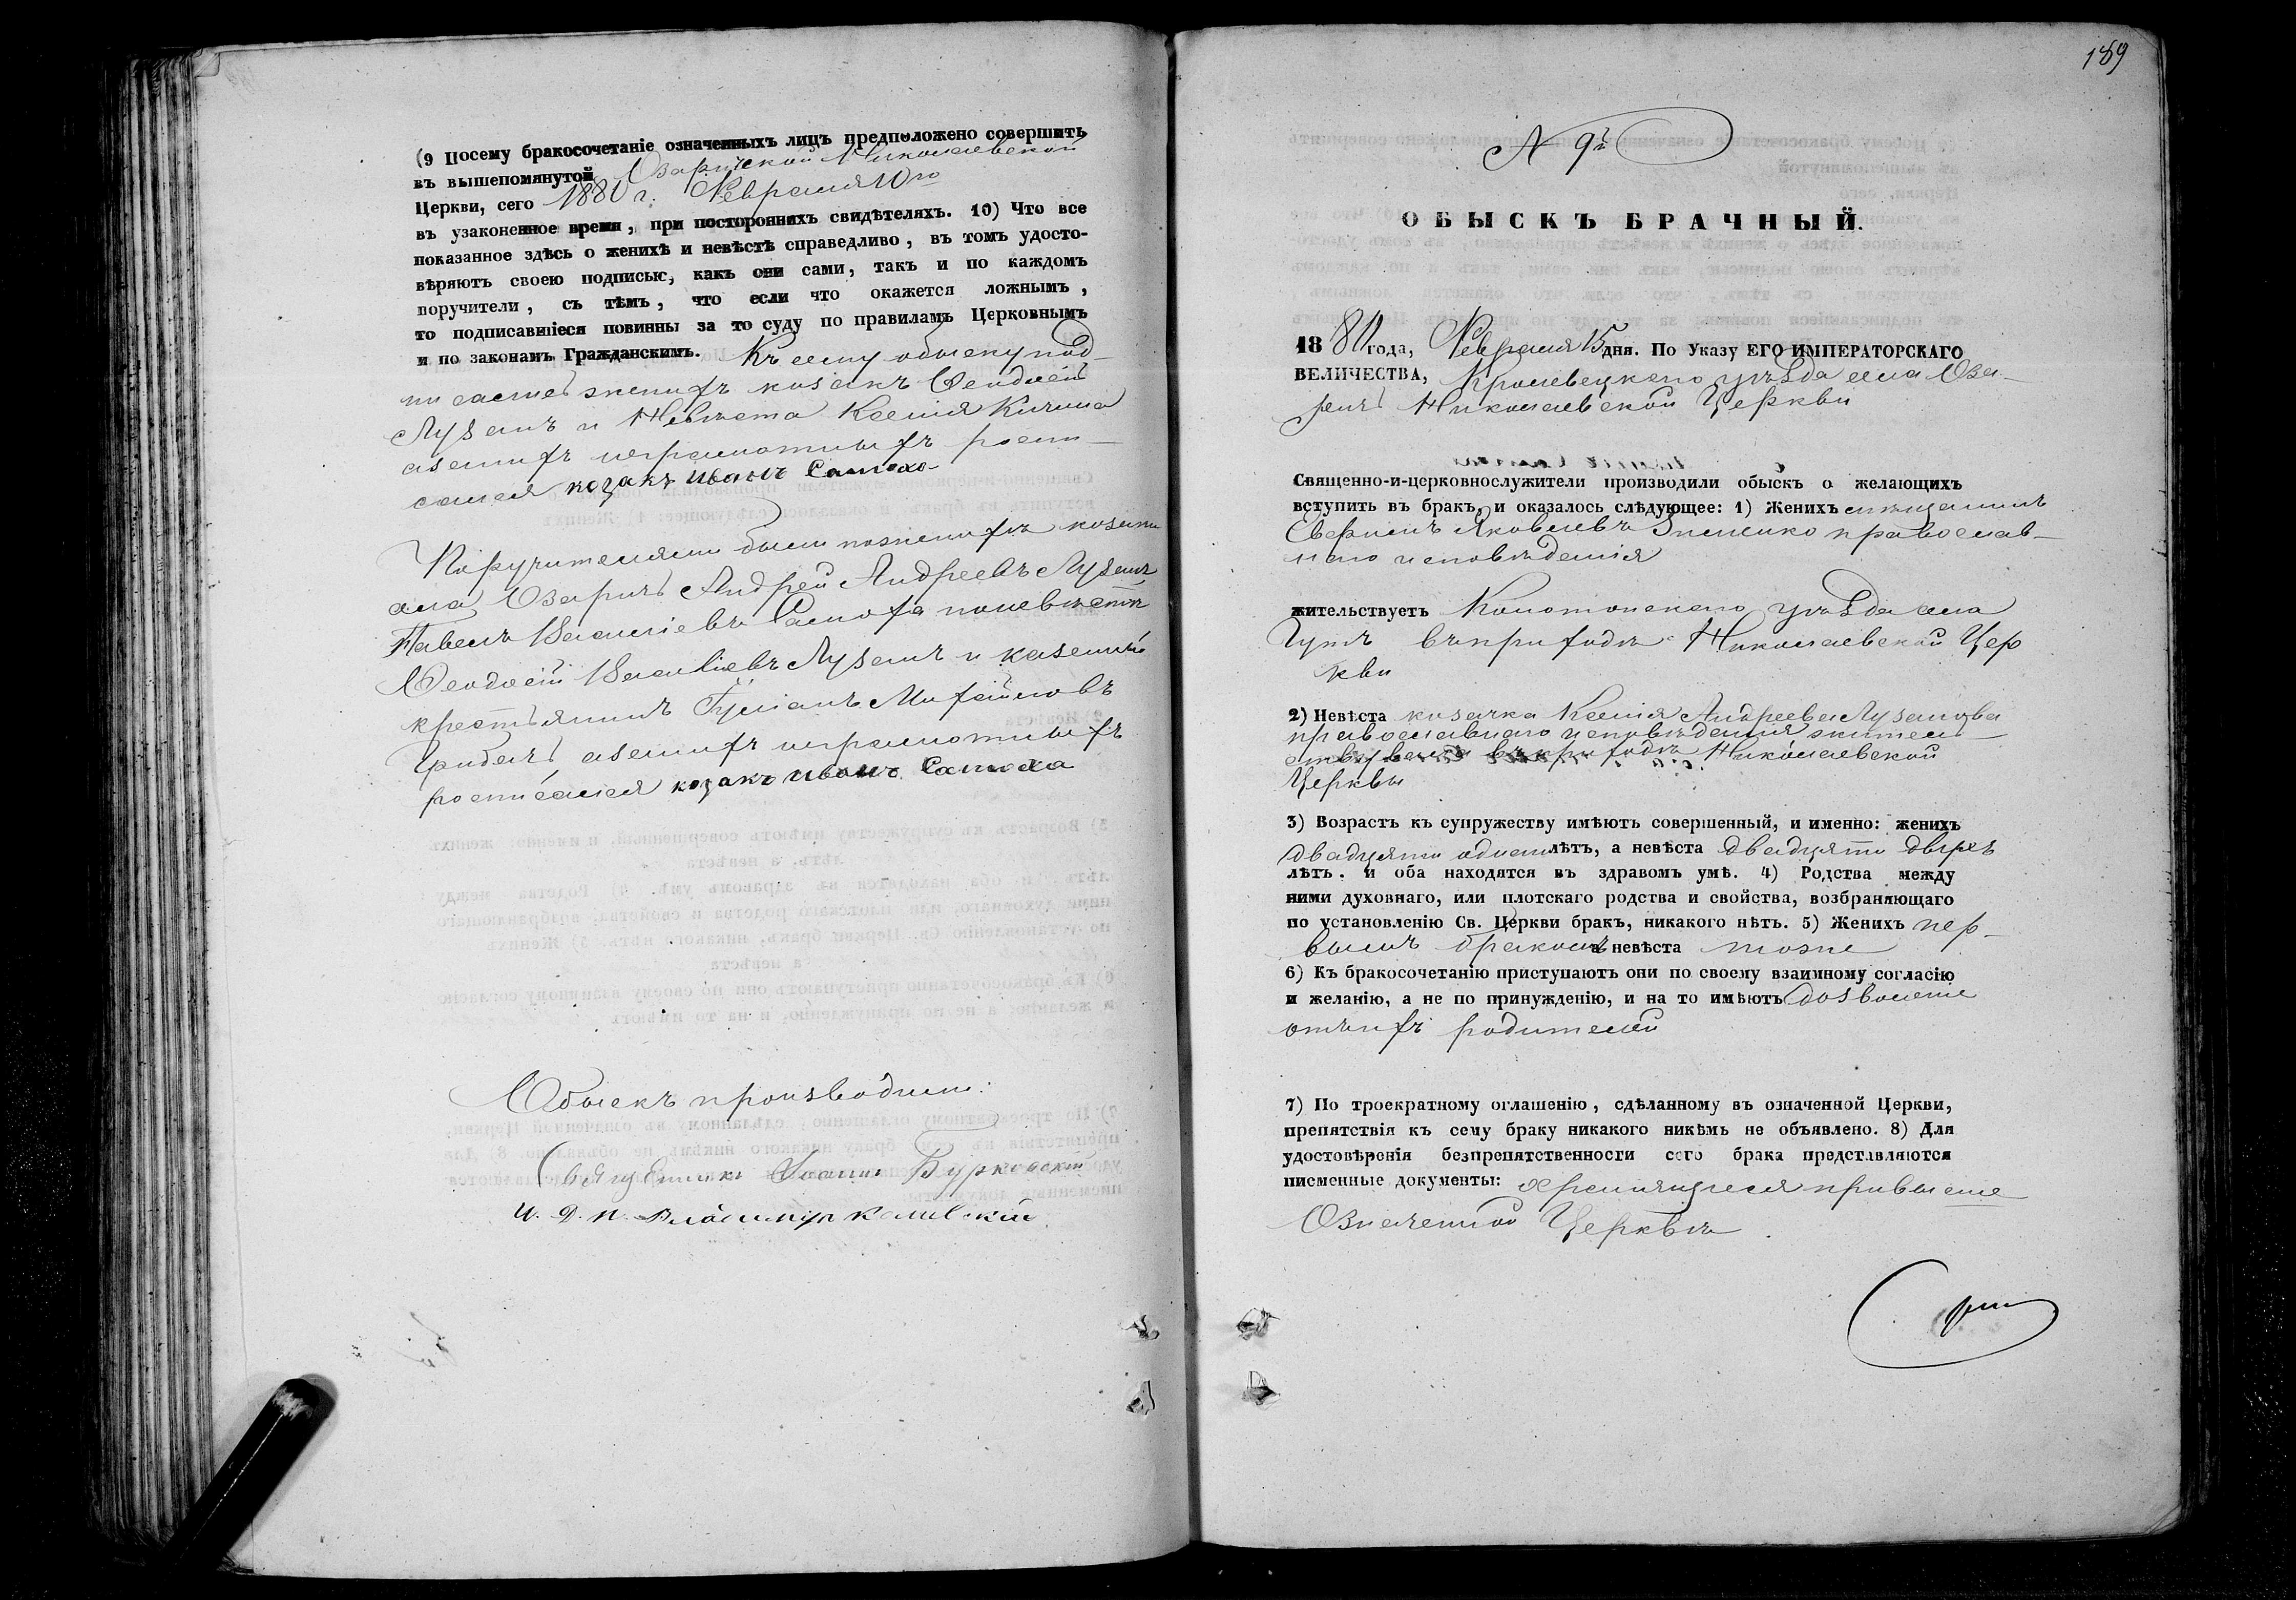 (9 Посему бракосочетаніе означенныхъ лицъ предположено совершить
въ вышепомянутой Озаричской Николаевской
Церкви, сего 1880 г. Февраля 10го
въ узаконенное время, при постороннихъ свидѣтеляхъ. 10) Что все
показанное здѣсь о женихѣ и невѣстѣ справедливо, въ томъ удосто-
вѣряютъ своею подписью, какъ они сами, такъ и по каждомъ
поручители, съ тѣмъ, что если что окажется ложнымъ,
то подписавшіеся повинны за то суду по правиламъ Церковнымъ
и по законамъ Гражданскимъ. Къ сему обыску под-
женихъ козакъ Ѳеодосій
Лузанъ и Невѣста Ксенія
а за нихъ неграмотныхъ роспи-
сался козакъ иванъ Самоха
Поручителями были по женихѣ козаки
села Озаричъ Андрей Андреевъ Лузанъ
Павелъ Василіевъ Самоха по невѣстѣ
Ѳеодосій Василіевъ Лузанъ и казенный
крестьянинъ Михайловъ
а за нихъ неграмотныхъ
росписался козакъ иванъ Самоха
Обыскъ производили:
Священникъ Іоаннъ Бурковскій
И. д. п. Владимиръ
189
N 9й
ОБЫСКЪ БРАЧНЫЙ.
1880 года, Февраля 15 дня. По Указу ЕГО ИМПЕРАТОРСКАГО
ВЕЛИЧЕСТВА, Кролевецкаго уѣзда села Оза-
ричъ Николаевской Церкви
Священно-и-церковнослужители производили обыскъ о желающихъ
вступить въ бракъ, и оказалось слѣдующее: 1) Женихъ мѣщанинъ
Яковлевъ православ-
наго исповѣданія
жительствуетъ Конотопскаго уѣзда села
Гутъ въ приходѣ Николаевской Цер
кви
2) Невѣста козачка Ксенія Андреева Лузанова
православнаго исповѣданія жительс-
твуетъ въ приходѣ Николаевской
Церквы
3) Возрастъ къ супружеству имѣютъ совершенный, и именно: женихъ
двадцяти лѣтъ, а невѣста двадцяти двухъ
лѣтъ. и оба находятся въ здравомъ умѣ. 4) Родства между
ними духовнаго, или плотскаго родства и свойства, возбраняющаго
по установленію Св. Церкви бракъ, никакого нѣтъ. 5) Женихъ пер-
вымъ бракомъ а невѣста тоже
6) Къ бракосочетанію приступаютъ они по своему взаимному согласію
и желанію, а не по принужденію, и на то имѣютъ дозволеніе
отъ ихъ родителей
7) По троекратному оглашенію, сдѣланному въ означенной Церкви,
препятствія къ сему браку никакого никѣмъ не объявлено. 8) Для
удостовѣренія безпрепятственности сего брака представляются
писменные документы: хранящіеся при выше
Означенной Церквѣ